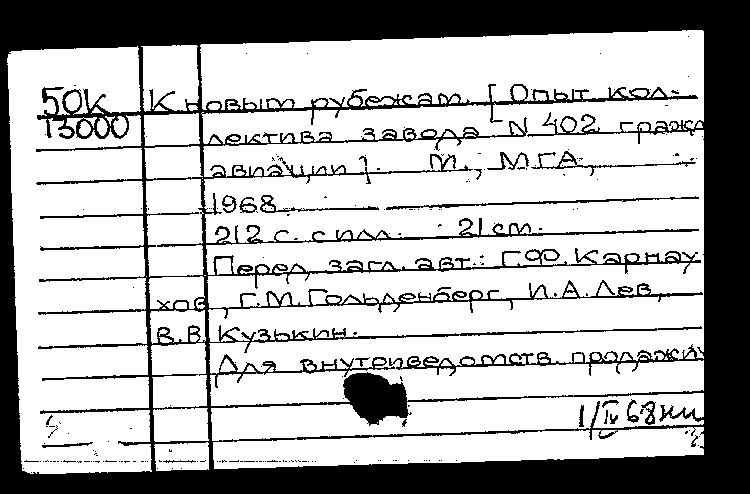 50К К новым рубежам. [Опыт кол-
13000 лектива завода N 402 гражд
авиации]. М., МГА,
1968.
212 с. с илл. 21 см.
Перед загл. авт.: Г.Ф. Карнау
хов, Г.М. Гольденберг, И.А. Лев,
В.В. Кузькин.
Для внутриведомств. продажи
1/IV 68